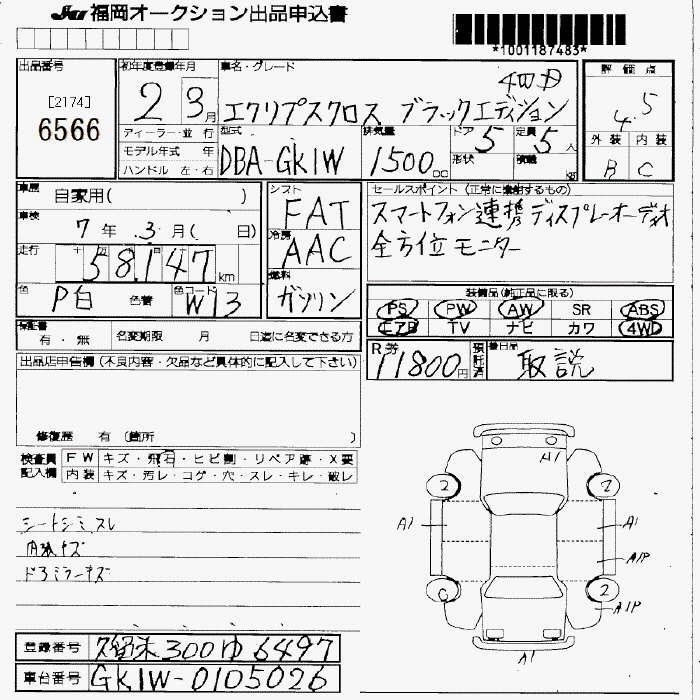 JU 福岡オークション出品申込書
*1001187483*
出品番号 初年度登録年月 車名・グレード 評価点
[2174]
6566
2 3月
4WD
エクリプスクロス ブラックエディション
4.5
ディーラー・並行 型式 排気量 ドア 定員 外装 内装
モデル年式 年 DBA-GK1W 1500cc 5 5人 B C
ハンドル 左・右 形状 積載 kg
車歴 自家用( ) シフト FAT
車検 7年 3月( 日) 冷房 AAC
走行 58,147km 燃料 ガソリン
色 P白 色替 色コード W13
セールスポイント(正常に作動するもの)
スマートフォン連携ディスプレーオーディオ
全方位モニター
装備品(純正品に限る)
PS PW AW SR ABS
エアB TV ナビ カワ 4WD
保証書 有・無 名変期限 月 日迄に名変できる方
R券 11800円 預託済 後日品 取説
出品店申告欄(不良内容・欠品など具体的に記入して下さい)
修復歴 有 (箇所 )
検査員 FW キズ・飛石・ヒビ割・リペア跡・X要
記入欄 内装 キズ・汚レ・コゲ・穴・スレ・キレ・破レ
シートシミスレ
内張キズ
ドアミラーキズ
A1
2 2
A1 A1
A1P
2
A1P
A1
登録番号 久留米300ゆ6497
車台番号 GK1W-0105026